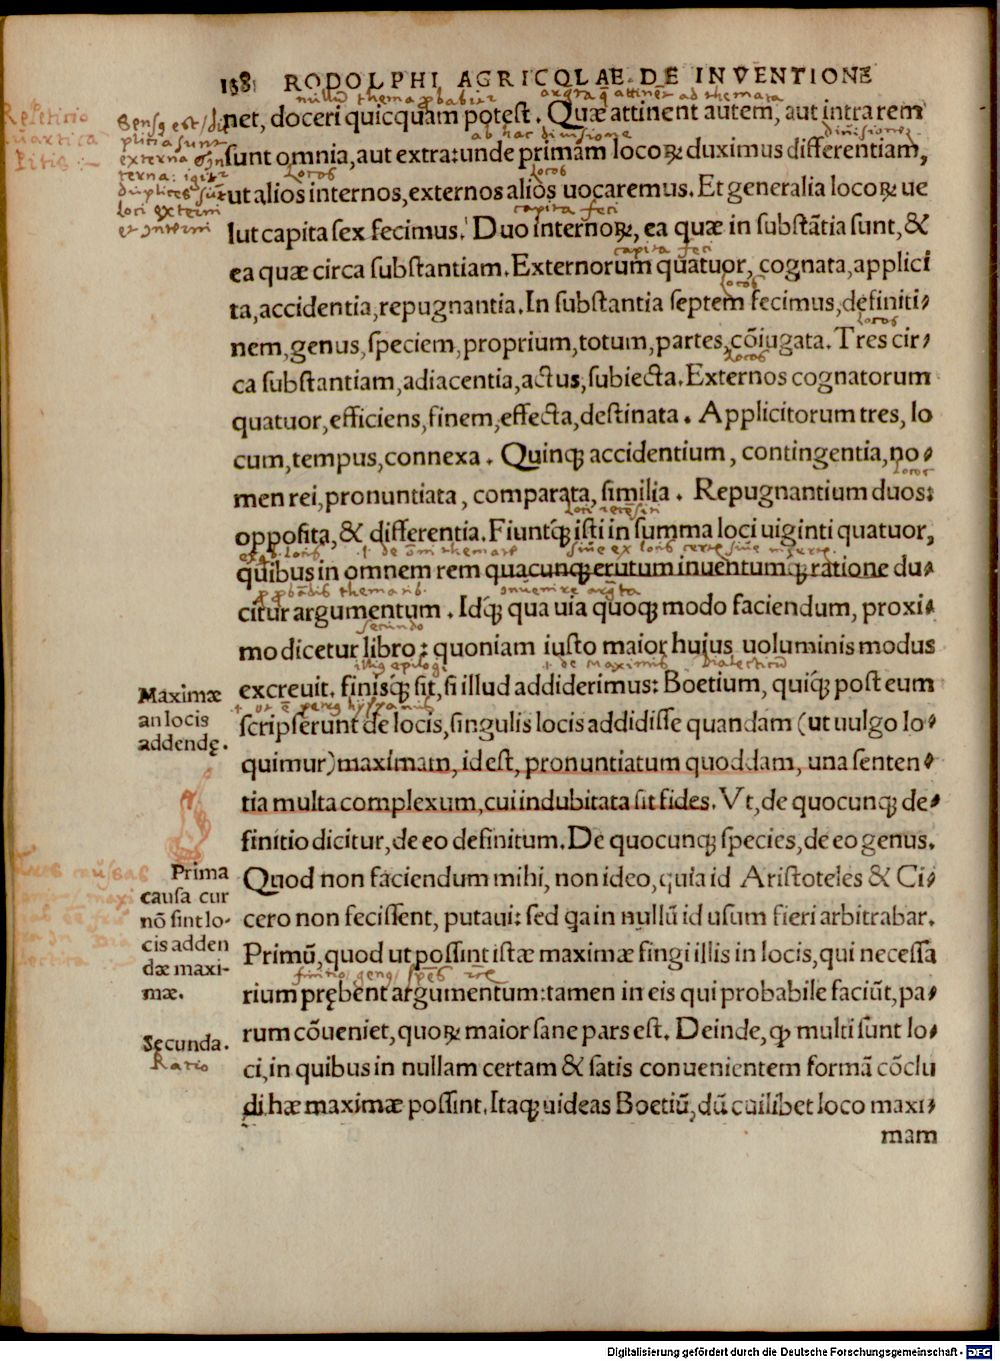 138 RODOLPHI AGRICOLAE DE INVENTIONE
net, doceri quicquam potest. Quæ attinent autem, aut intra rem
sunt omnia, aut extra: unde primam locoꝝ duximus differentiam,
ut alios internos, externos alios uocaremus. Et generalia locoꝝ ue
lut capita sex fecimus. Duo internoꝝ, ea quæ in substãtia sunt, &
ea quæ circa substantiam. Externorum quatuor, cognata, applici
ta, accidentia, repugnantia. In substantia septem fecimus, definiti-
nem, genus, speciem, proprium, totum, partes, cõiugata. Tres cir-
ca substantiam, adiacentia, actus, subiecta. Externos cognatorum
quatuor, efficiens, finem, effecta, destinata. Applicitorum tres, lo
cum, tempus, connexa. Quinqꝫ accidentium, contingentia, no-
men rei, pronuntiata, comparata, similia. Repugnantium duos:
opposita, & differentia. Fiuntqꝫ isti in summa loci uiginti quatuor,
quibus in omnem rem quacunqꝫ erutum inuentumqꝫ ratione du-
citur argumentum. Idqꝫ qua uia quoqꝫ modo faciendum, proxi-
mo dicetur libro: quoniam iusto maior huius uoluminis modus
excreuit. finisqꝫ sit, si illud addiderimus: Boetium, quiqꝫ post eum
scripserunt de locis, singulis locis addidisse quandam (ut uulgo lo-
quimur) maximam, id est, pronuntiatum quoddam, una senten-
tia multa complexum, cui indubitata sit fides. Vt, de quocunqꝫ de-
finitio dicitur, de eo definitum. De quocunqꝫ species, de eo genus.
Quod non faciendum mihi, non ideo, quia id Aristoteles & Ci-
cero non fecissent, putaui: sed qa in nullũ id usum fieri arbitrabar.
Primũ, quod ut possint istæ maximæ fingi illis in locis, qui necessa
rium prębent argumentum: tamen in eis qui probabile faciũt, pa-
rum cõueniet, quoꝝ maior sane pars est. Deinde, ꝙ multi sunt lo-
ci, in quibus in nullam certam & satis conuenientem formã cõclu
di hæ maximæ possint. Itaqꝫ uideas Boetiũ, dũ cuilibet loco maxi-
mam
Maximæ
an locis
addendę.
Prima
causa cur
nõ sint lo-
cis adden
dæ maxi-
mæ.
Secunda.
Ratio
Sensus est / du
plicia sunt
externa et in
terna: igitur
duplices sunt
loci externi
et interni
Digitalisierung gefördert durch die Deutsche Forschungsgemeinschaft - DFG